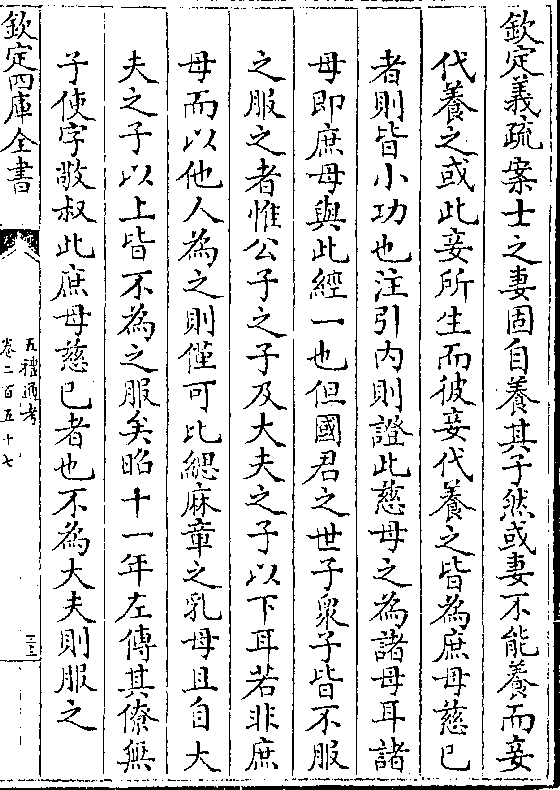 欽定義疏案士之妻固自養其子然或妻不能養而妾
代養之或此妾所生而彼妾代養之皆為庶母慈已
者則皆小功也注引内則證此慈母之為諸母耳諸
母即庶母與此經一也但國君之世子衆子皆不服
之服之者惟公子之子及大夫之子以下耳若非庶
母而以他人為之則僅可比緦麻章之乳母且自大
夫之子以上皆不為之服矣昭十一年左傳其僚無
子使字敬叔此庶母慈已者也不為大夫則服之
欽定四庫全書
五禮通考
卷二百五十七
三五